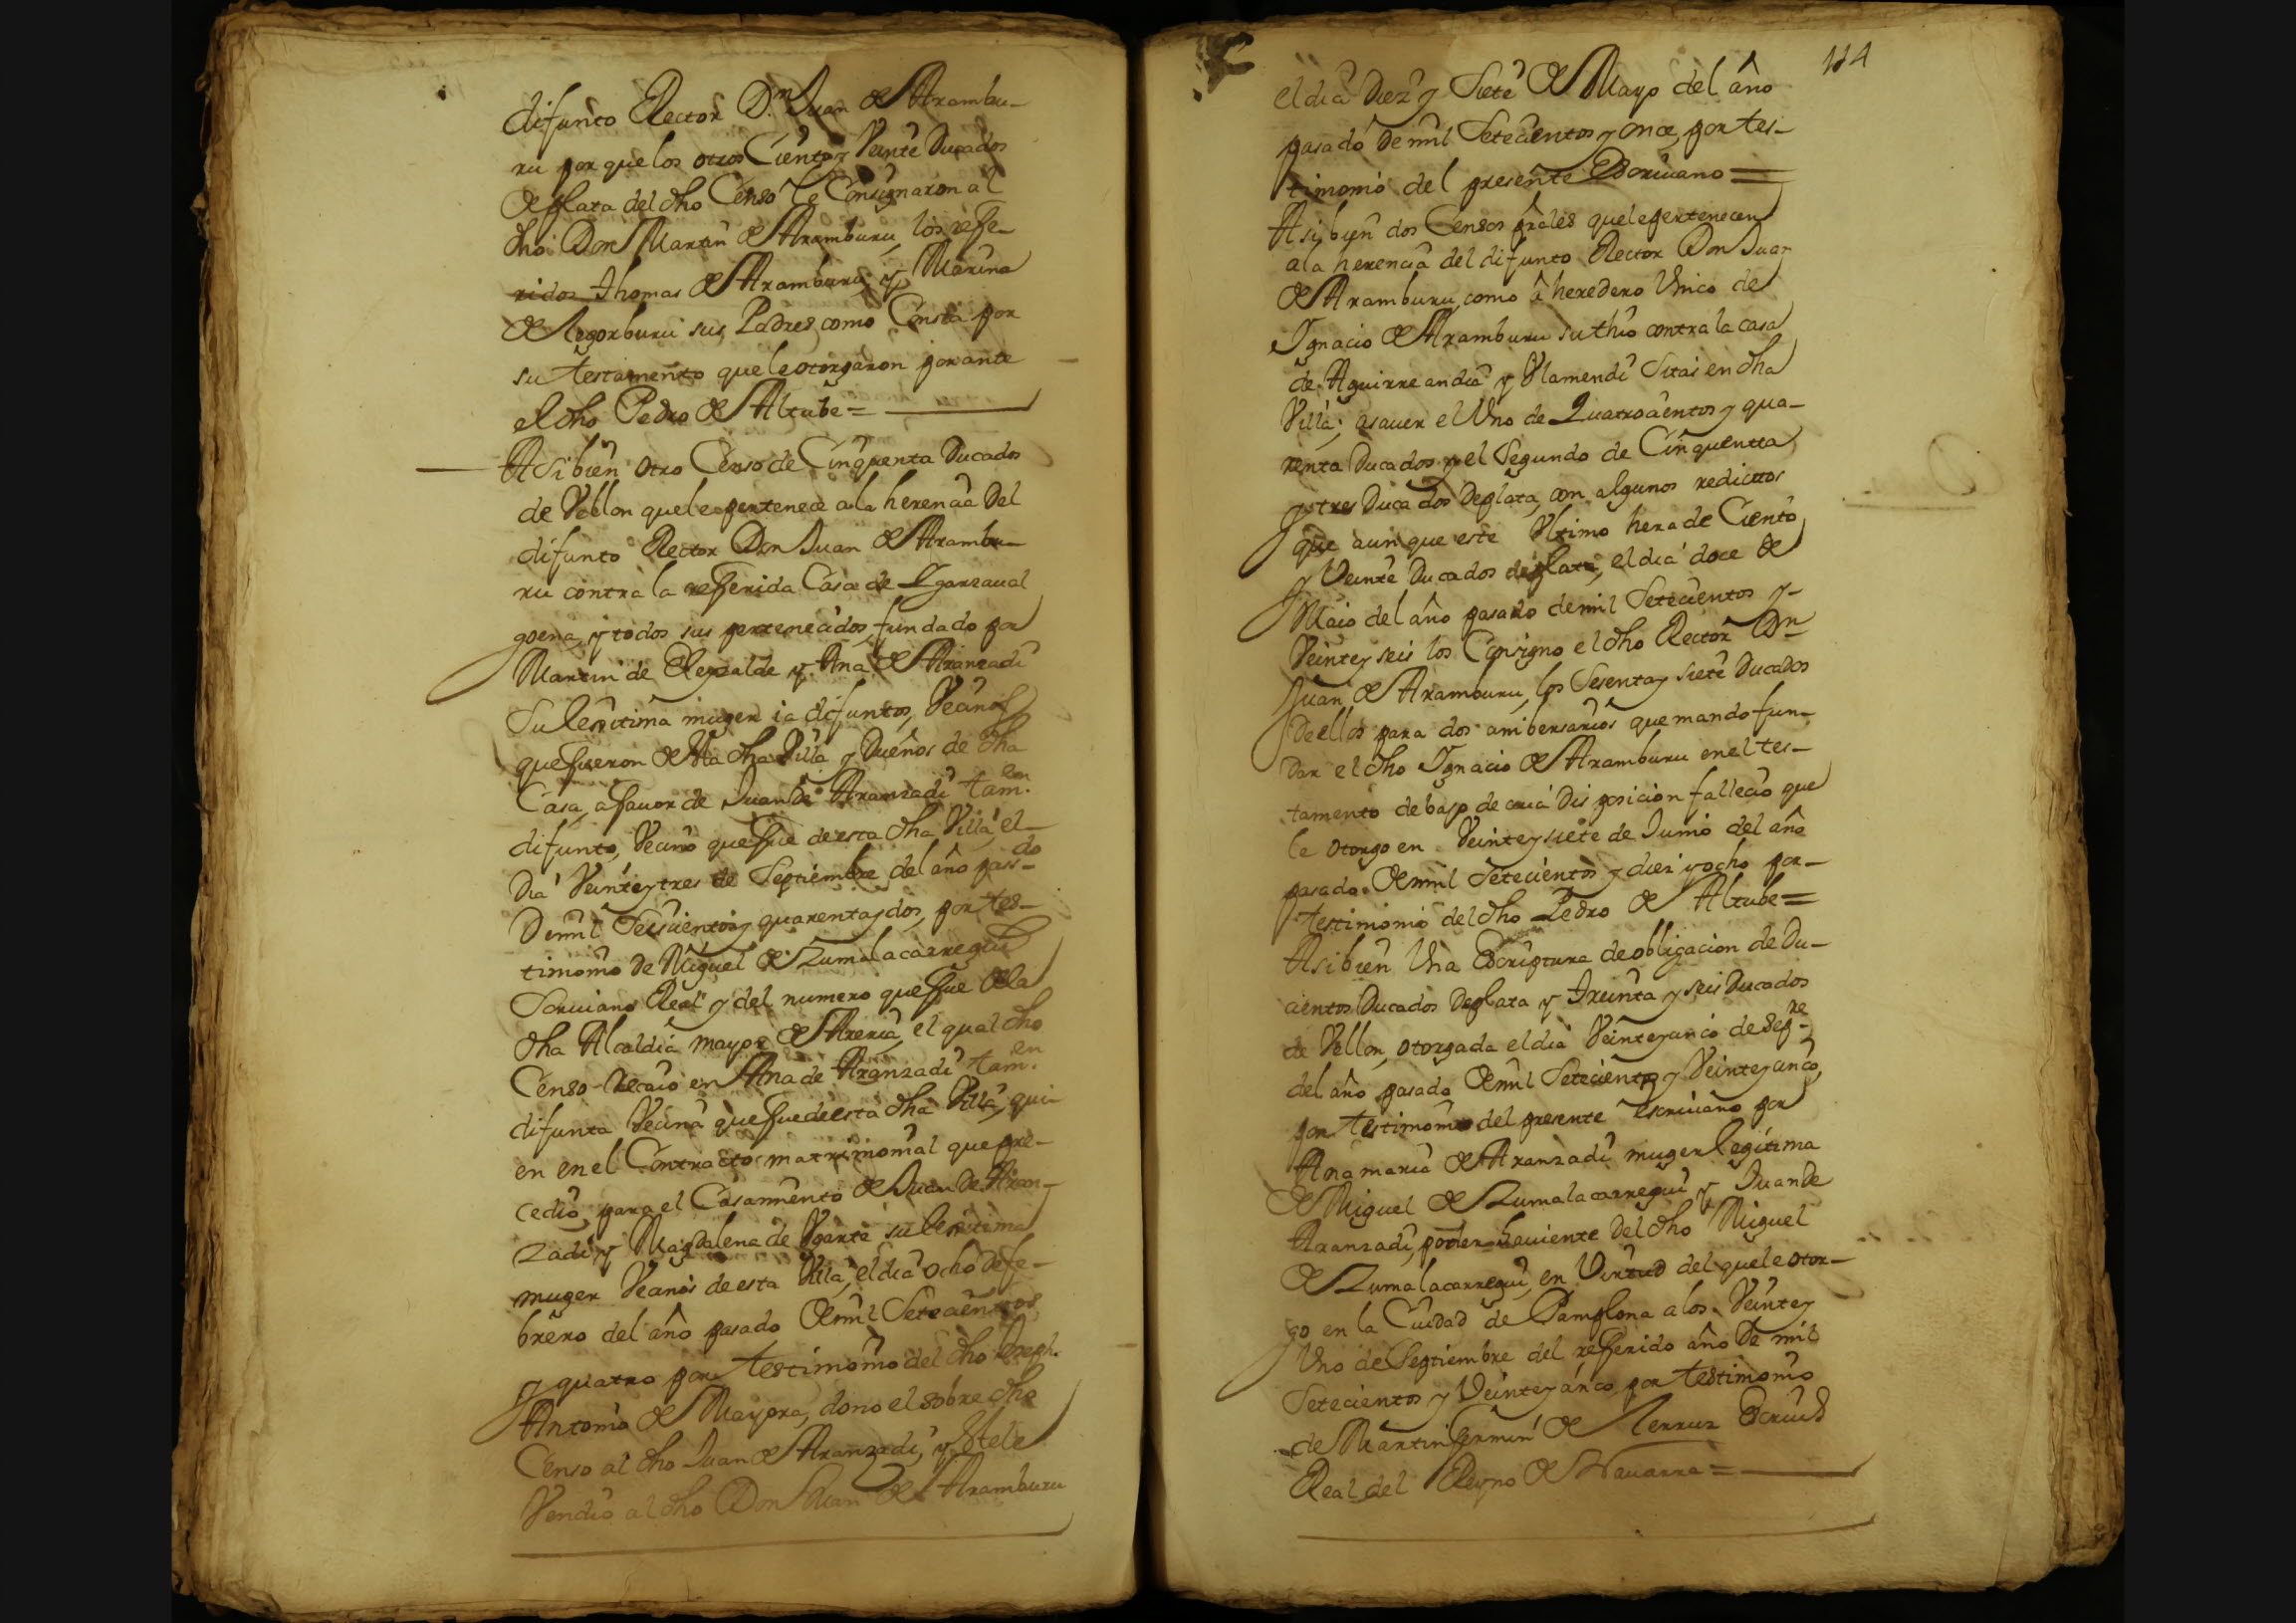 difunto Rector D.n Juan de Arambu-
ru por que los otros Ciento y Veinte Ducados
de plata del dho Censo le Consignaron al
dho Don Martin de Aramburu, los refe-
ridos Thomas de Aramburu, y Marina
de Legorburu sus Padres como Consta por
su testamento que le otorgaron por ante
el dho Pedro de Altube =
Asi bien otro Censo de Cinquenta Ducados
de Vellon que le pertenece a la herencia Del
difunto Rector Don Juan de Arambu-
ru contra la referida Casa de Igarzaual
goena, y todos sus pertenecidos, fundado por
Martin de Eleyzalde y Ana de Aranzadi
Su lexitima muger ia difuntos, Vecinos
que fueron de Sta dha Villa y Dueños de dha
Casa, a fauor de Juan De Aranzadi tam.en
difunto, Vecino que fue de esta dha Villa, el
Dia Veinte y tres de Septiembre del año pass.do
De mil Seiscientos y quarenta y dos, por tes-
timonio de Miguel de Zumalacarregui
Scriuano Real y del numero que fue de la
dha Alcaldia mayor de Areria, el qual dho
Censo recaio en Ana de Aranzadi tam.en
difunta Vecina que fue de esta dha Villa, qui-
en en el Contracto matrimonial que pre-
cedio para el Casamiento de Juan De Aran-
zadi y Magdalena de Vgarte su lexitima
muger Vecinos de esta Villa, el dia ocho de fe-
brero del año pasado de mil Setecientos
y quatro por testimonio del dho Joseph
Antonio de Mayora, dono el sobre dho
Censo al dho Juan de Aranzadi, y Este le
Vendio al dho Don Juan de Aramburu
114
el dia Diez y Siete de Mayo del año
pasado de mil Setecientos y once, por tes-
timonio del presente Escriuano =
Asi bien dos Censos prâles que le pertenecen
a la herencia del difunto Rector Don Juan
de Aramburu, como â heredero Vnico de
Ignacio de Aramburu su thio contra la casa
de Aguirreandia y Vlamendi Sitas en dha
Villa; asauer el Vno de Quatrocientos y qua-
renta Ducados y el Segundo de Cinquentta
y tres Ducados De plata, con algunos redictos
que aunque este Vltimo hera de Ciento
y Veinte Ducados de plata, el dia doce de
Maio del año pasado de mil Setecientos y
Veinte y seis los Consigno el dho Rector Dn
Juan de Aramburu, los Sesenta y siete Ducados
De ellos para dos anibersarios que mando fun-
Dar el dho Ignacio de Aramburu en el tes-
tamento debajo de cuia Disposicion fallecio que
le otorgo en Veinte y siete de Junio del año
pasado de mil Setecientos y diez y ocho por
testimonio del dho Pedro de Altube =
Asi bien Vna Escriptura de obligacion de Du-
cientos Ducados De plata y Treinta y seis Ducados
de Vellon, otorgada el dia Veinte y cinco de Sep.re
del año pasado de mil Setecientos y Veinte y cinco,
por testimonio del presente escriuano por
Ana maria de Aranzadi muger legitima
de Miguel de Zumalacarregui y Juan De
Aranzadi, poder hauiente Del dho Miguel
de Zumalacarregui, en Virtud del que le otor-
go en la Ciudad de Pamplona a los Veinte y
Vno de Septiembre del referido año De mil
Setecientos y Veinte y cinco por testimonio
de Martin fermin de Lerruz Escriu.o
Real del Reyno de Nauarra =